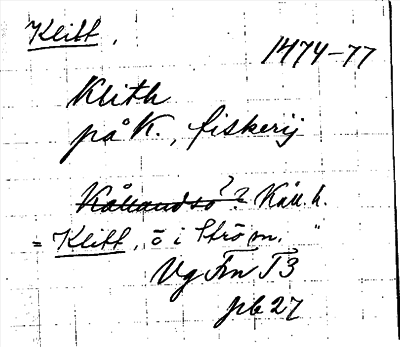 Klitt,
1474-77
Klith
på K., fiskerij
Kållandsö?? Kåll. h.
= Klitt, ö i Ström, "
Vg Fn T3
jb 27